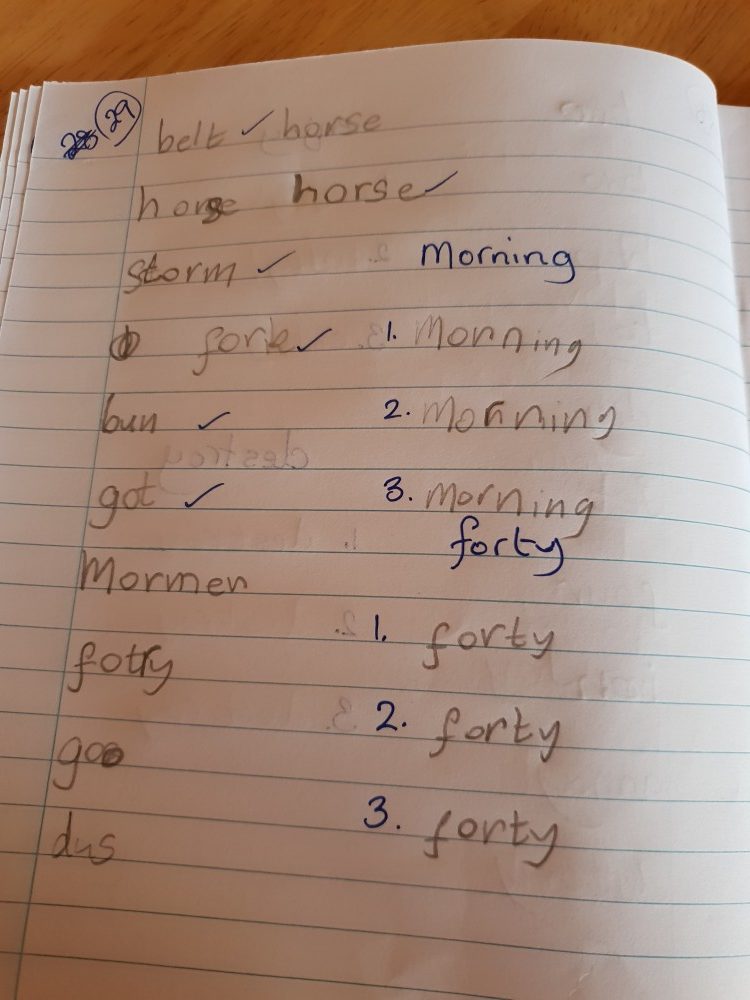 29 belt ✓ horse
horse horse ✓
storm ✓ Morning
fork ✓ 1. Morning
bun ✓ 2. Morning
got ✓ 3. morning
forty
Mormen
1. forty
fotry
2. forty
goo
3. forty
dus